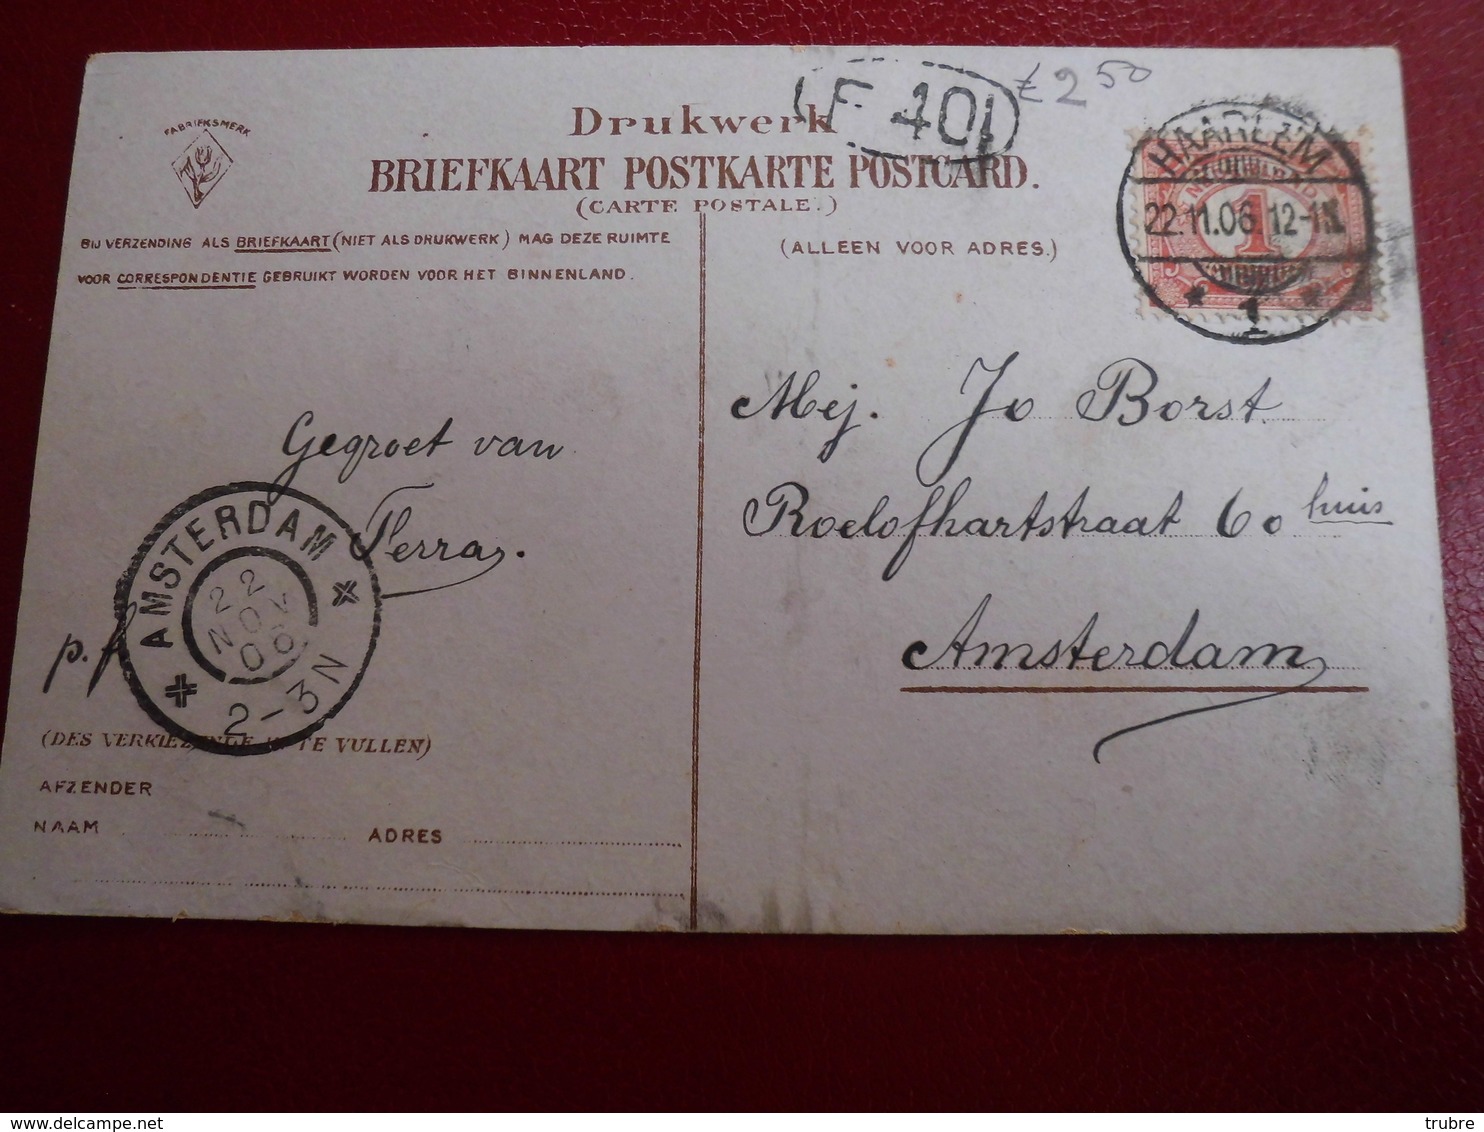 FABRIEKSMERK
Drukwerk
F 40
£ 2 50
BRIEFKAART POSTKARTE POSTCARD.
(CARTE POSTALE.)
BIJ VERZENDING ALS BRIEFKAART (NIET ALS DRUKWERK) MAG DEZE RUIMTE
VOOR CORRESPONDENTIE GEBRUIKT WORDEN VOOR HET BINNENLAND.
(ALLEEN VOOR ADRES.)
HAARLEM
22.11.06 12-1N
1
1
Mej. Jo Borst
Roelofhartstraat 60 huis
Amsterdam
Gegroet van
Ferra.
p.f
AMSTERDAM
22
NOV
06
2-3N
(DES VERKIEZENDE IN TE VULLEN)
AFZENDER
NAAM ADRES
delcampe.net
trubre